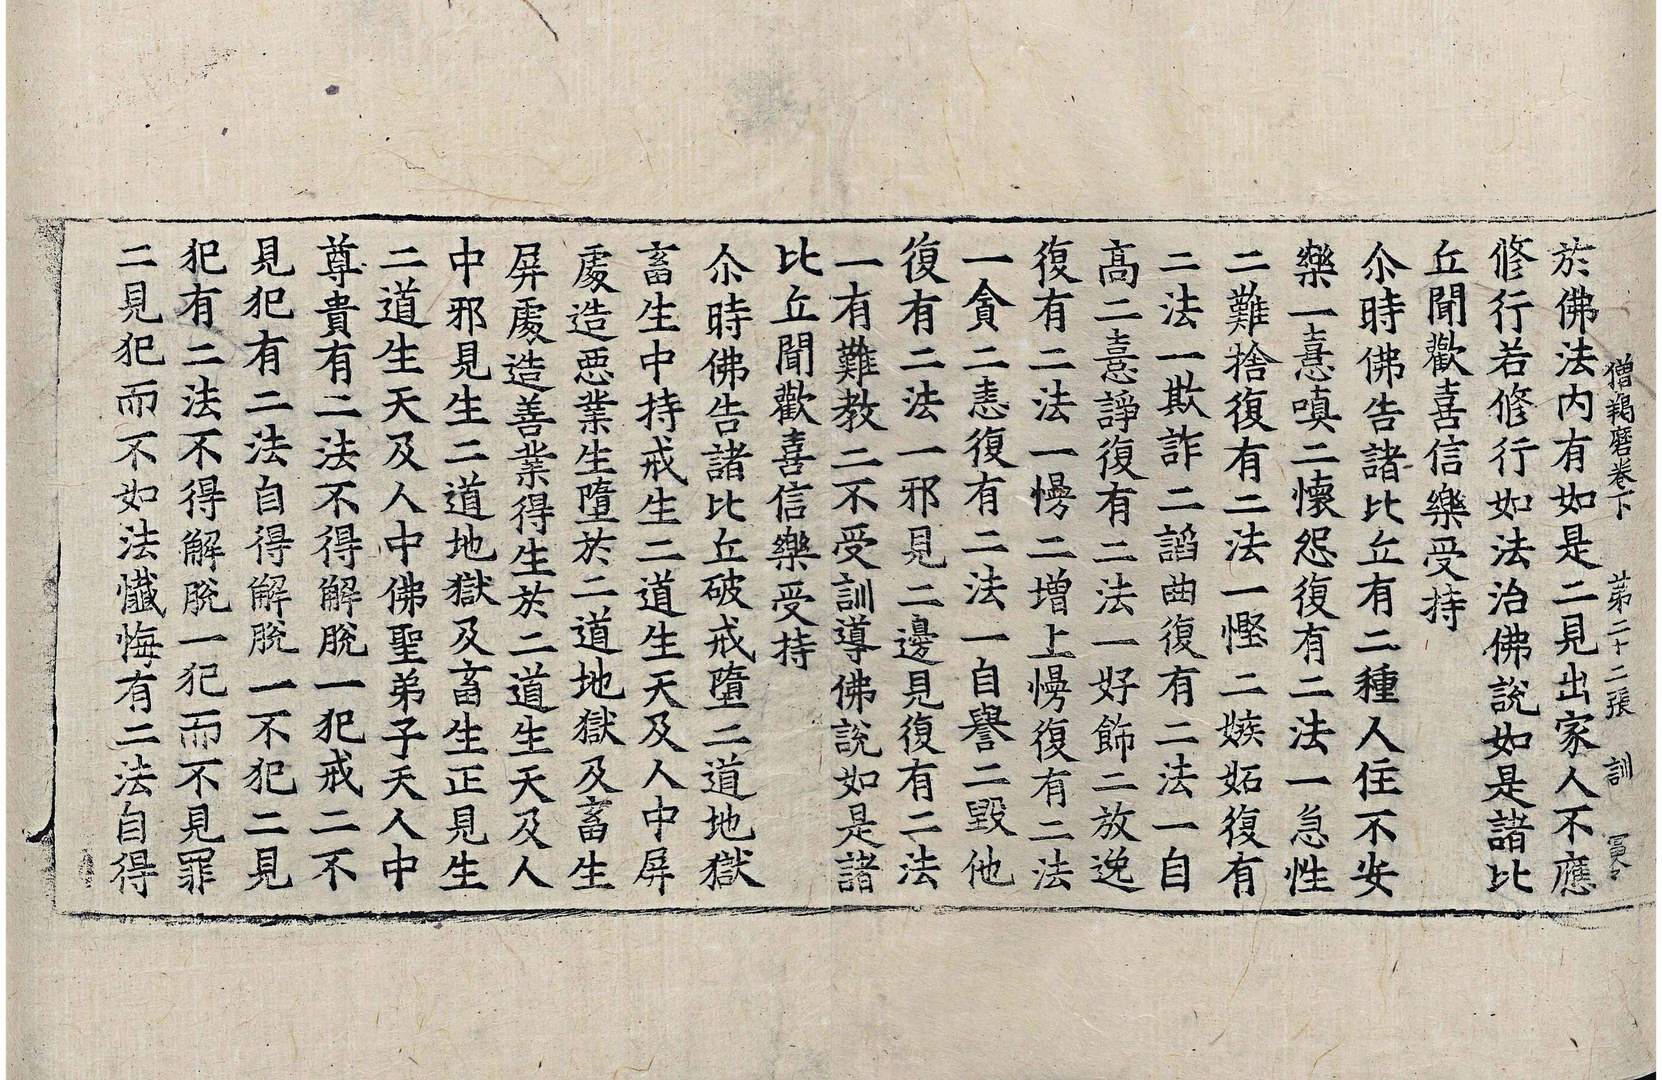 僧羯磨卷下　第二十二張　訓
於佛法內有如是二見出家人不應
修行若修行如法治佛說如是諸比
丘聞歡喜信樂受持
尒時佛告諸比丘有二種人住不安
樂一憙嗔二懷怨復有二法一急性
二難捨復有二法一慳二嫉妬復有
二法一欺詐二謟曲復有二法一自
高二憙諍復有二法一好飾二放逸
復有二法一慢二增上慢復有二法
一貪二恚復有二法一自譽二毀他
復有二法一邪見二邊見復有二法
一有難教二不受訓導佛說如是諸
比丘聞歡喜信樂受持
尒時佛告諸比丘破戒墮二道地獄
畜生中持戒生二道生天及人中屏
處造惡業生墮於二道地獄及畜生
屏處造善業得生於二道生天及人
中邪見生二道地獄及畜生正見生
二道生天及人中佛聖弟子天人中
尊貴有二法不得解脫一犯戒二不
見犯有二法自得解脫一不犯二見
犯有二法不得解脫一犯而不見罪
二見犯而不如法懺悔有二法自得